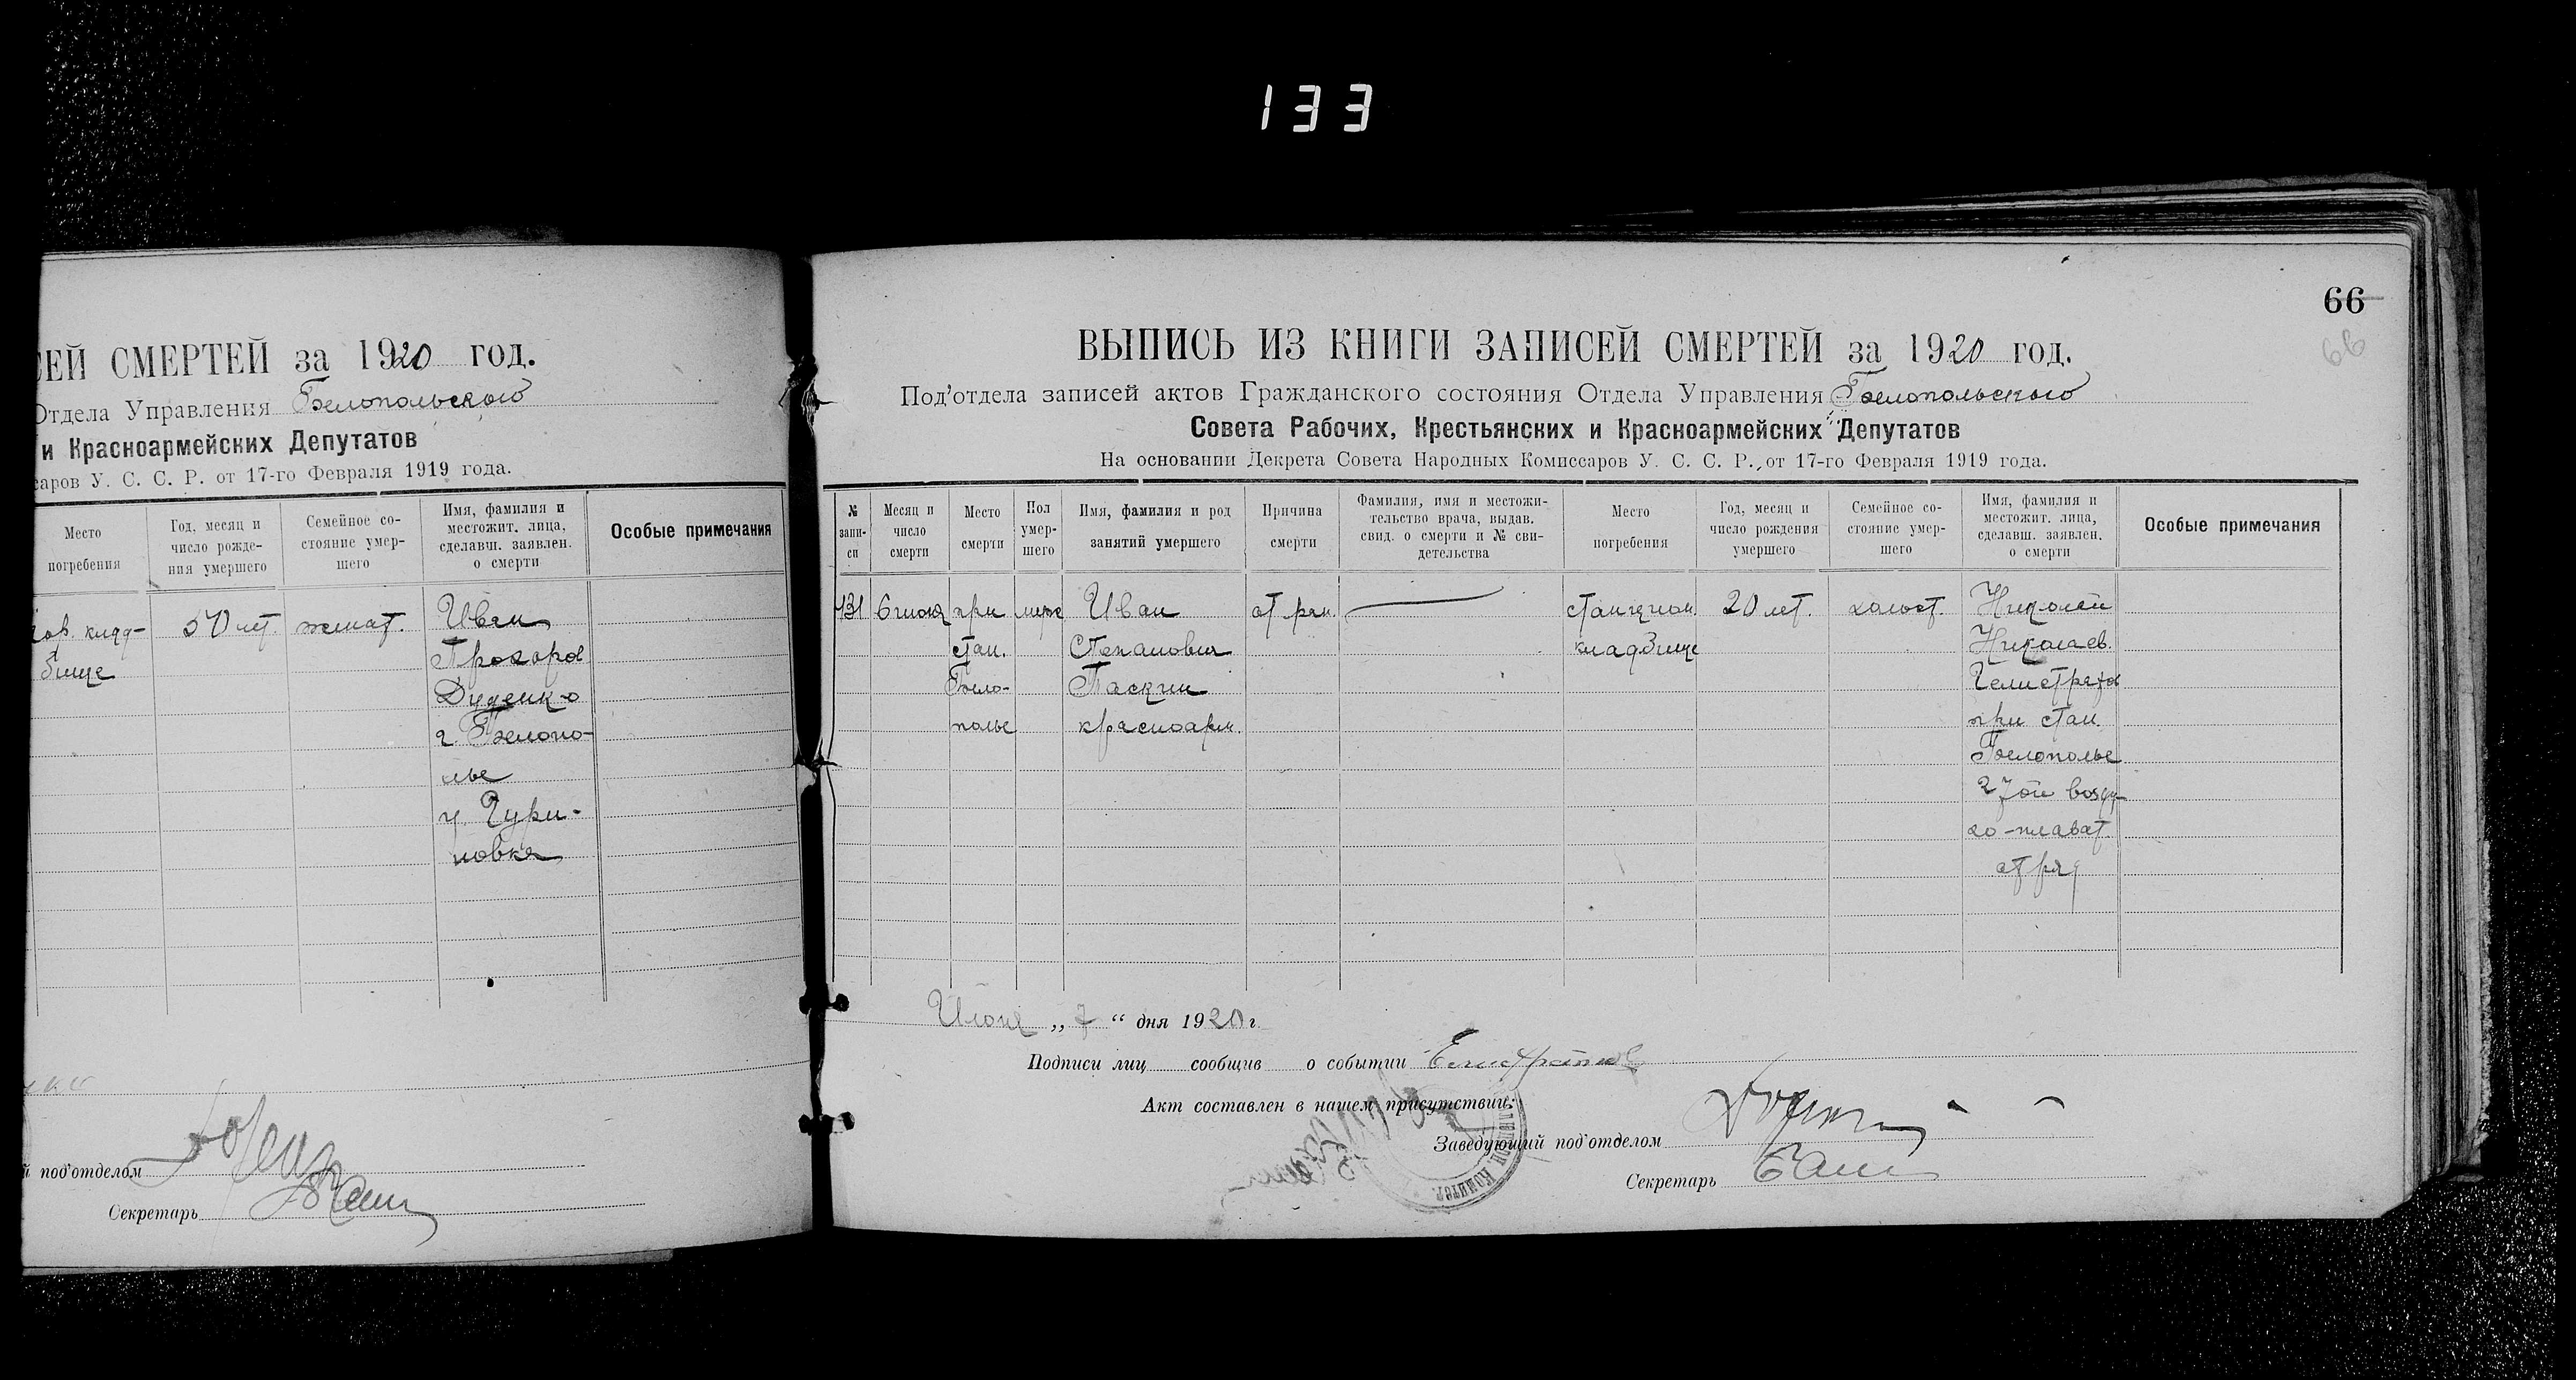 133
СЕЙ СМЕРТЕЙ за 1920 год.
Отдела Управления Белопольского
и Красноармейских Депутатов
саров У. С. С. Р. от 17-го Февраля 1919 года.
Место погребения
Год, месяц и число рожде-ния умершего
Семейное со-стояние умер-шего
Имя, фамилия и местожит. лица, сделавш. заявлен. о смерти
Особые примечания
кладбище
50 лет.
женат.
Иван
Прохоров
Дуденко
г. Белопо-
лье
Гури-
новка
й под'отделом
Секретарь
66
66
ВЫПИСЬ ИЗ КНИГИ ЗАПИСЕЙ СМЕРТЕЙ за 1920 год.
Под'отдела записей актов Гражданского состояния Отдела Управления Белопольского
Совета Рабочих, Крестьянских и Красноармейских Депутатов
На основании Декрета Совета Народных Комиссаров У. С. С. Р., от 17-го Февраля 1919 года.
№ запи-си
Месяц и число смерти
Место смерти
Пол умер-шего
Имя, фамилия и род занятий умершего
Причина смерти
Фамилия, имя и местожи-тельство врача, выдав. свид. о смерти и № сви-детельства
Место погребения
Год, месяц и число рождения умершего
Семейное со-стояние умер-шего
Имя, фамилия и местожит. лица, сделавш. заявлен. о смерти
Особые примечания
131
6 июня
при
стан.
Бело-
полье
муж
Иван
Степанович
Паскин
красноарм.
от ран.
станцион.
кладбище
20 лет.
холост.
Николай
Николаев.
при стан.
Белополье
27ой возду-
хо-плават.
отряд
Июня „7“ дня 1920 г.
Подписи лиц сообщив о событии
Акт составлен в нашем присутствии:
Заведующий под'отделом
Секретарь